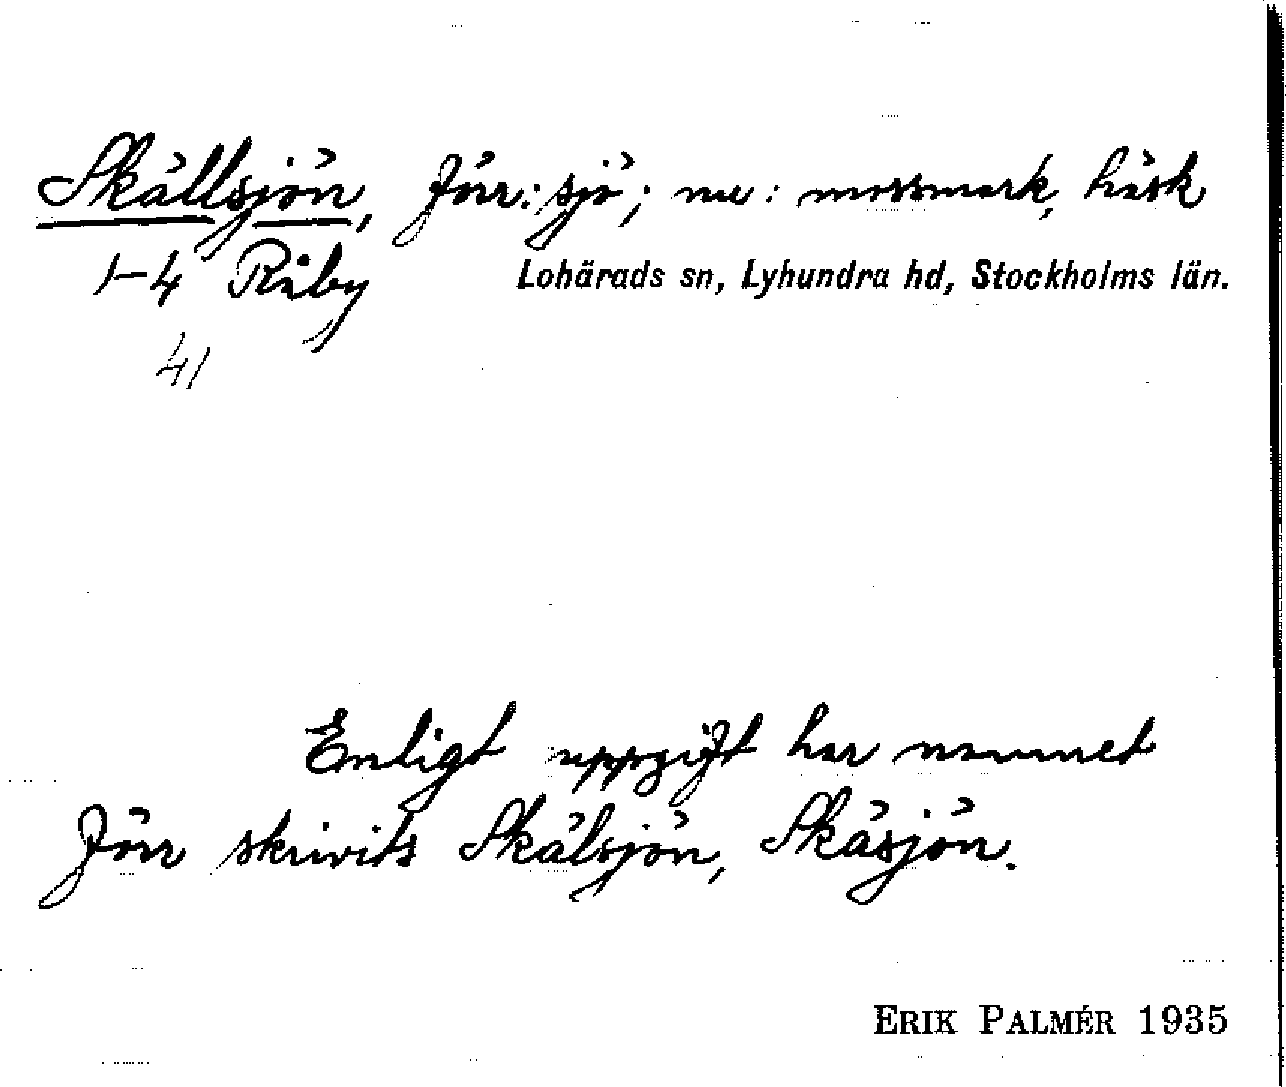 Skällsjön, förr: sjö; nu: mossmark, käsk
1-4 Råby Lohärads sn, Lyhundra hd, Stockholms län.
41
Enligt uppgift har namnet
förr skrivits Skälsjön, Skäsjön.
ERIK PALMÉR 1935